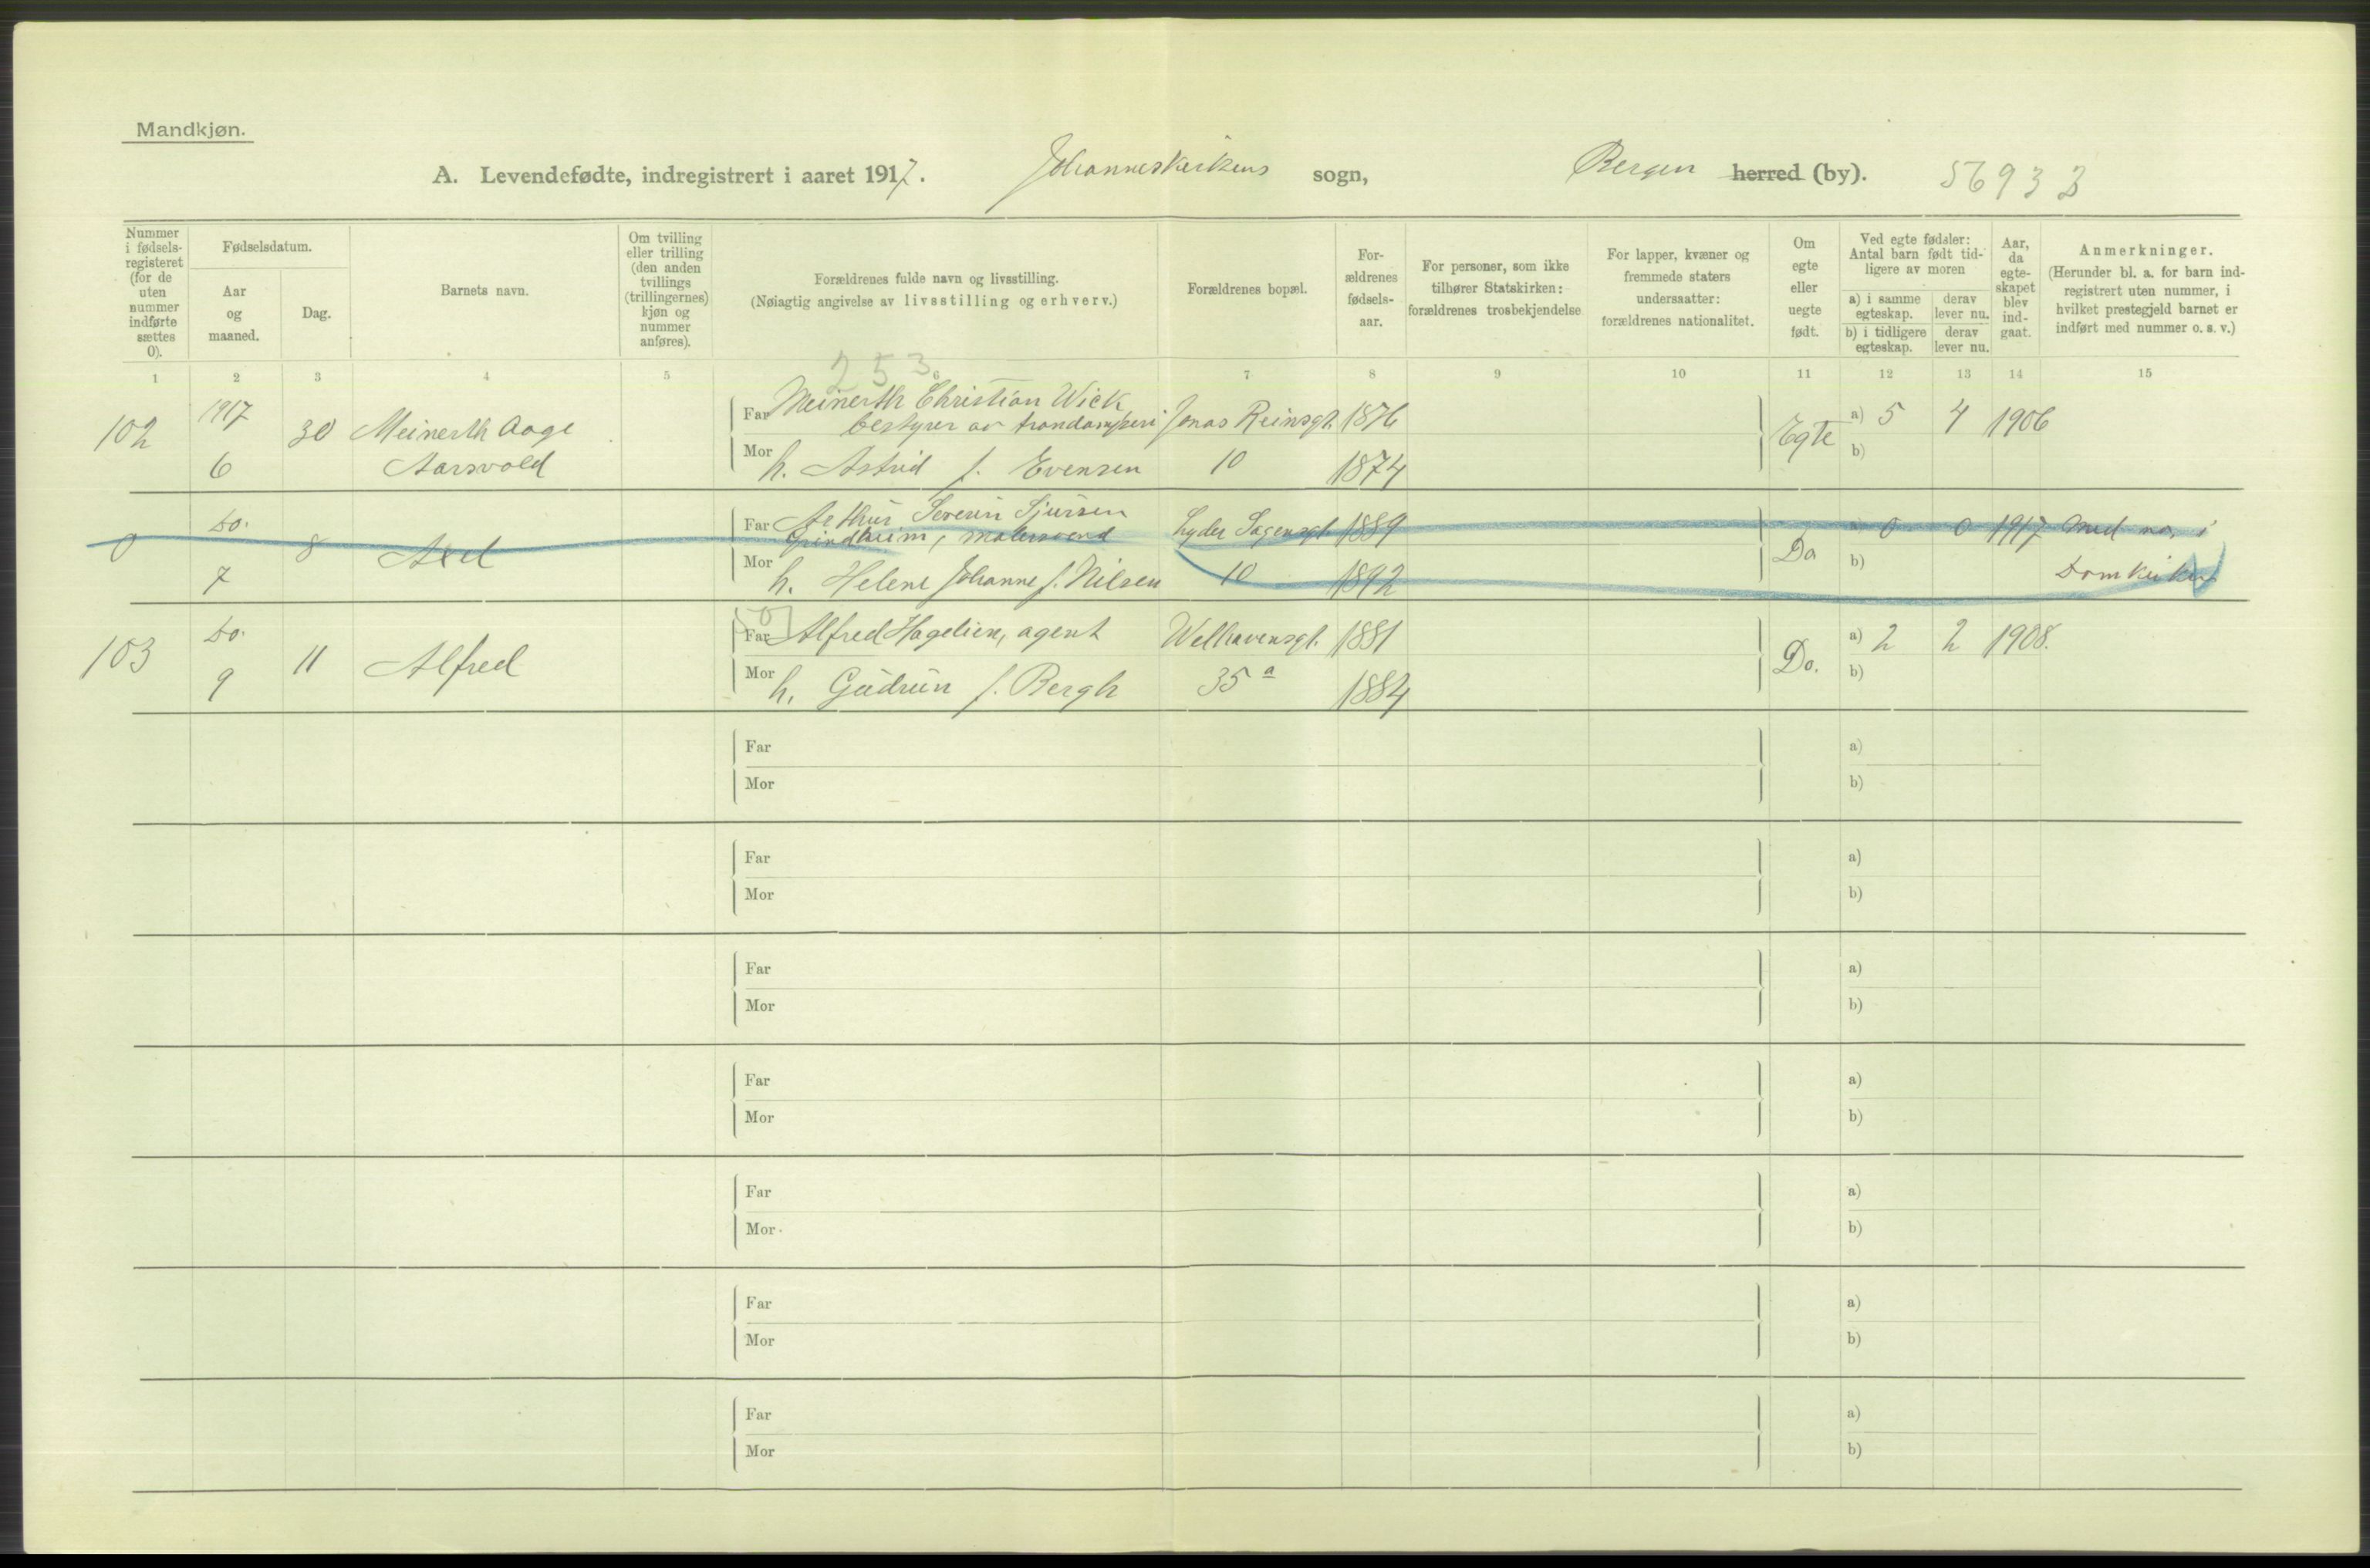 Mandkjøn.
A. Levendefødte, indregistrert i aaret 1917. Johanneskirkens sogn, Bergen herred (by). 56933
Nummer i fødsels-registeret (for de uten nummer indførte sættes 0).
Fødselsdatum.
Aar og maaned.
Dag.
Barnets navn.
Om tvilling eller trilling (den anden tvillings (trillingernes) kjøn og nummer anføres).
Forældrenes fulde navn og livsstilling.
(Nøiagtig angivelse av livsstilling og erhverv.)
Forældrenes bopæl.
For-ældrenes fødsels-aar.
For personer, som ikke tilhører Statskirken: forældrenes trosbekjendelse
For lapper, kvæner og fremmede staters undersaatter: forældrenes nationalitet.
Om egte eller uegte født.
Ved egte fødsler: Antal barn født tid-ligere av moren
a) i samme egteskap. derav lever nu.
b) i tidligere egteskap. derav lever nu.
Aar, da egte-skapet blev ind-gaat.
Anmerkninger.
(Herunder bl. a. for barn ind-registrert uten nummer, i hvilket prestegjeld barnet er indført med nummer o. s. v.)
253
1 2 3 4 5 6 7 8 9 10 11 12 13 14 15
102 1917 6 30 Meinerth Aage Aarsvold
Far Meinerth Christian Wick bestyrer av trandamperi Jonas Reinsgt. 1876
Mor h. Astrid f. Evensen 10 1874
Egte a) 5 4 1906
b)
0 Do. 7 8 Axel
Far Arthur Severin Sjursen Grindheim, malersvend Lyder Sagensgt. 1889
Mor h. Helene Johanne f. Nilsen 10 1892
Do a) 0 0 1917 Med no. i Domkirken
b)
103 Do. 9 11 Alfred
Far Alfred Hagelien, agent Welhavensgt. 1881
Mor h. Gudrun f. Bergh 35 a 1884
Do. a) 2 2 1908.
b)
Far a)
Mor b)
Far a)
Mor b)
Far a)
Mor b)
Far a)
Mor b)
Far a)
Mor b)
Far a)
Mor b)
Far a)
Mor b)